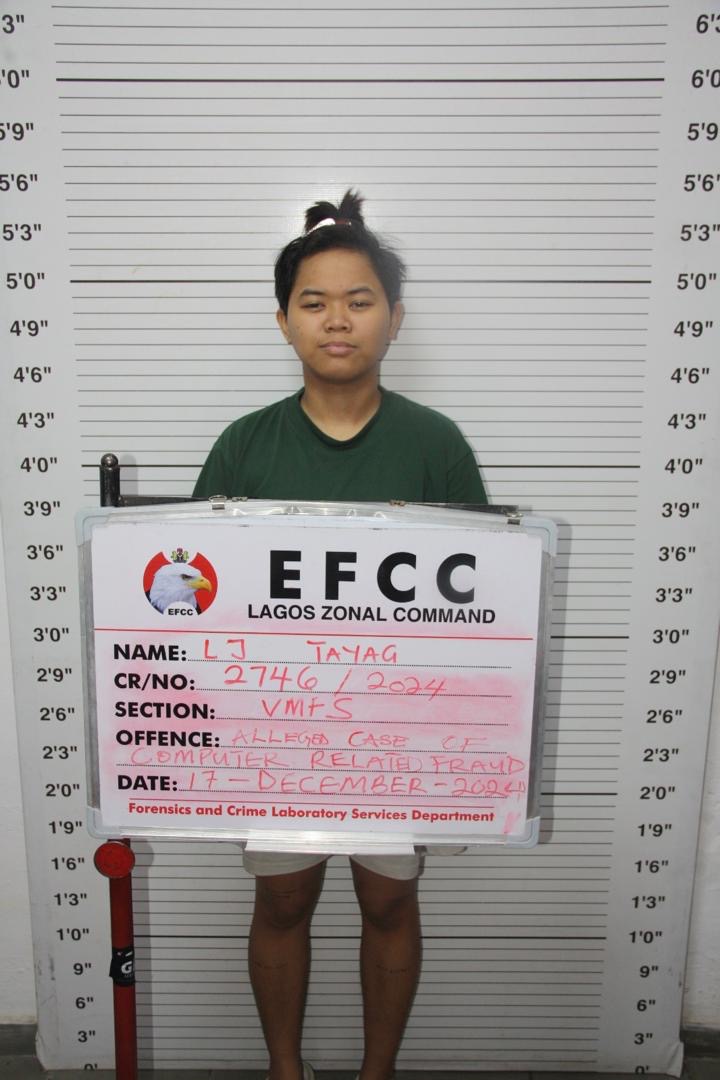 6'3"
6'0"
5'9"
5'6"
5'3"
5'0"
4'9"
4'6"
4'3"
4'0"
3'9"
3'6"
3'3"
3'0"
2'9"
2'6"
2'3"
2'0"
1'9"
1'6"
1'3"
1'0"
9"
6"
3"
0'
EFCC
EFCC
LAGOS ZONAL COMMAND
NAME: LJ TAYAG
CR/NO: 2746 / 2024
SECTION: VMFS
OFFENCE: ALLEGED CASE OF
COMPUTER RELATED FRAUD
DATE: 17 - DECEMBER - 2024
Forensics and Crime Laboratory Services Department
G
3"
'0"
5'9"
5'6"
5'3"
5'0"
4'9"
4'6"
4'3"
4'0"
3'9"
3'6"
3'3"
3'0"
2'9"
2'6"
2'3"
2'0"
1'9"
1'6"
1'3"
1'0"
9"
6"
3"
0'